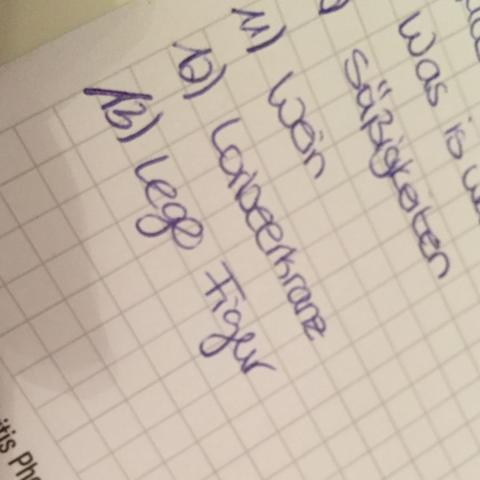 Was is
Süßigkeiten
11) Wein
12) Lorbeerkranz
13) Lego Figur
itis Pho